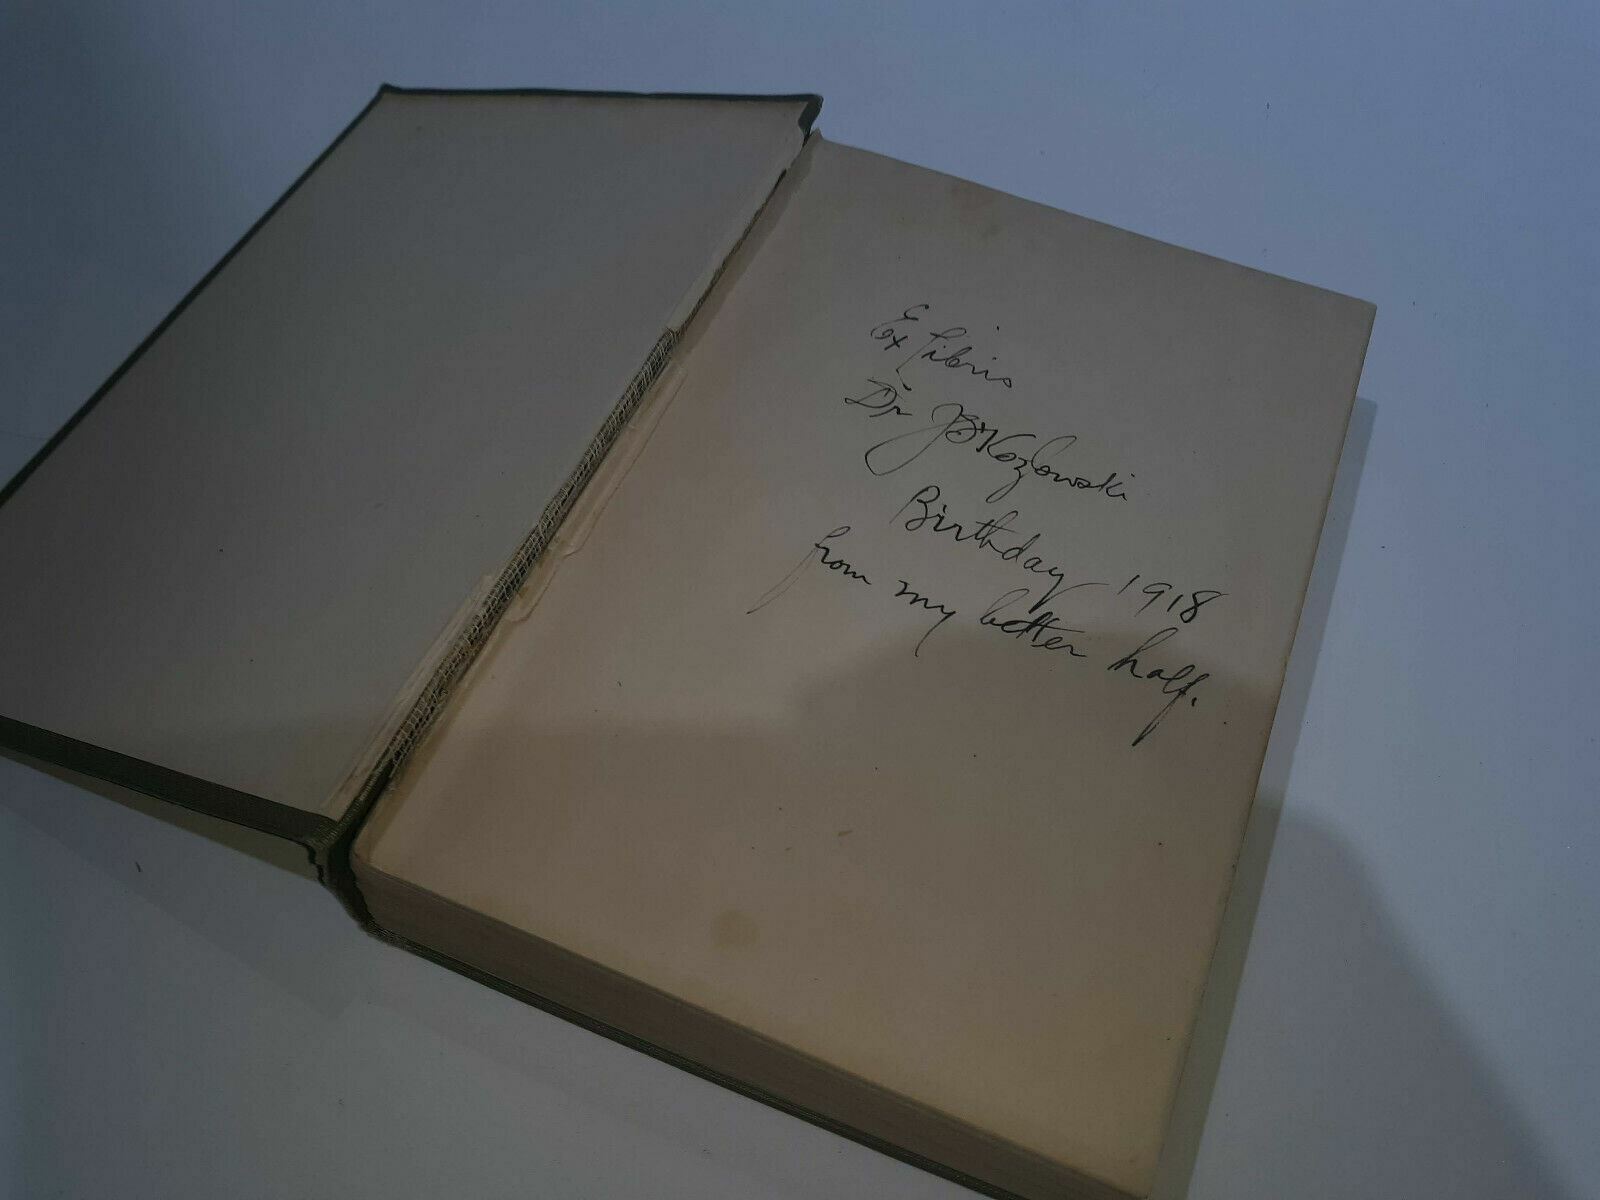 Ex libris
Dr JB Kozlowski
Birthday 1918
from my better half.